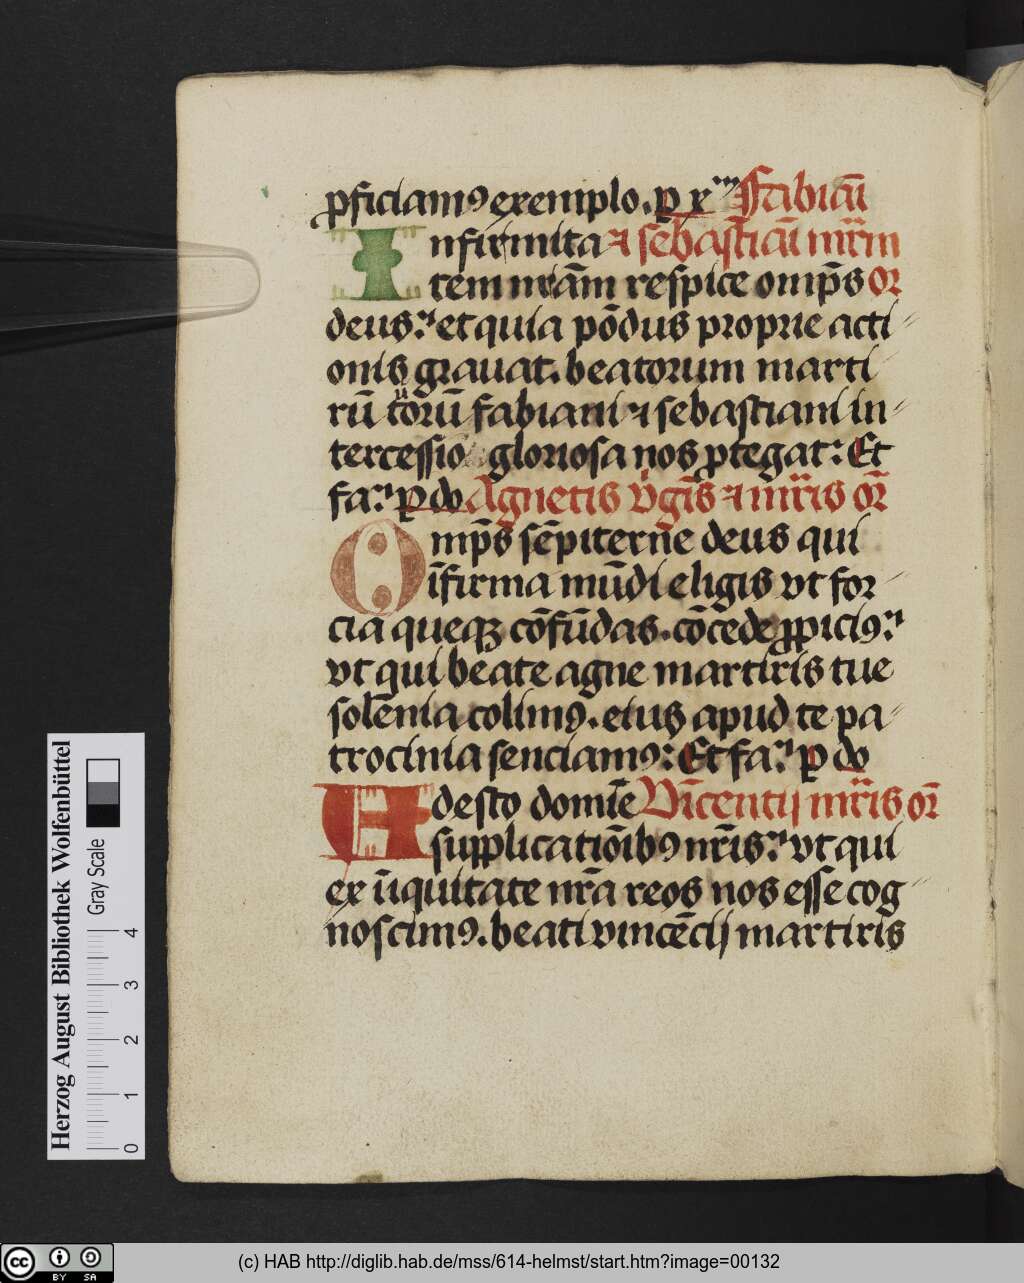 pficiamꝰ exemplo. p xᵐ Fabiani
Infirmita ⁊ sebastiani mr̄m
tem nr̄am respice omp̄s or̄
deus: et quia pōdus proprie acti
onis grauat. beatorum marti
rū tuorū fabiani ⁊ sebastiani in
tercessio gloriosa nos ꝓtegat: Et
fa: p do Agnetis v̄gīs ⁊ mr̄is or̄
Omp̄s sēpiterne deus qui
īfirma mūdi eligis vt for
cia queqꝫ cōfūdas. cōcede ꝓpiciꝰ:
vt qui beate agne martiris tue
solēnia colimꝰ. eius apud te pa
trocinia senciamꝰ: Et fa: p do
Adesto domīe Vīcentij mr̄is or̄
supplicatiōibꝰ nr̄is: vt qui
ex īiquitate nr̄a reos nos esse cog
noscimꝰ. beati vincēcij martiris
Herzog August Bibliothek Wolfenbüttel
Gray Scale
0 1 2 3 4
cc BY SA
(c) HAB http://diglib.hab.de/mss/614-helmst/start.htm?image=00132